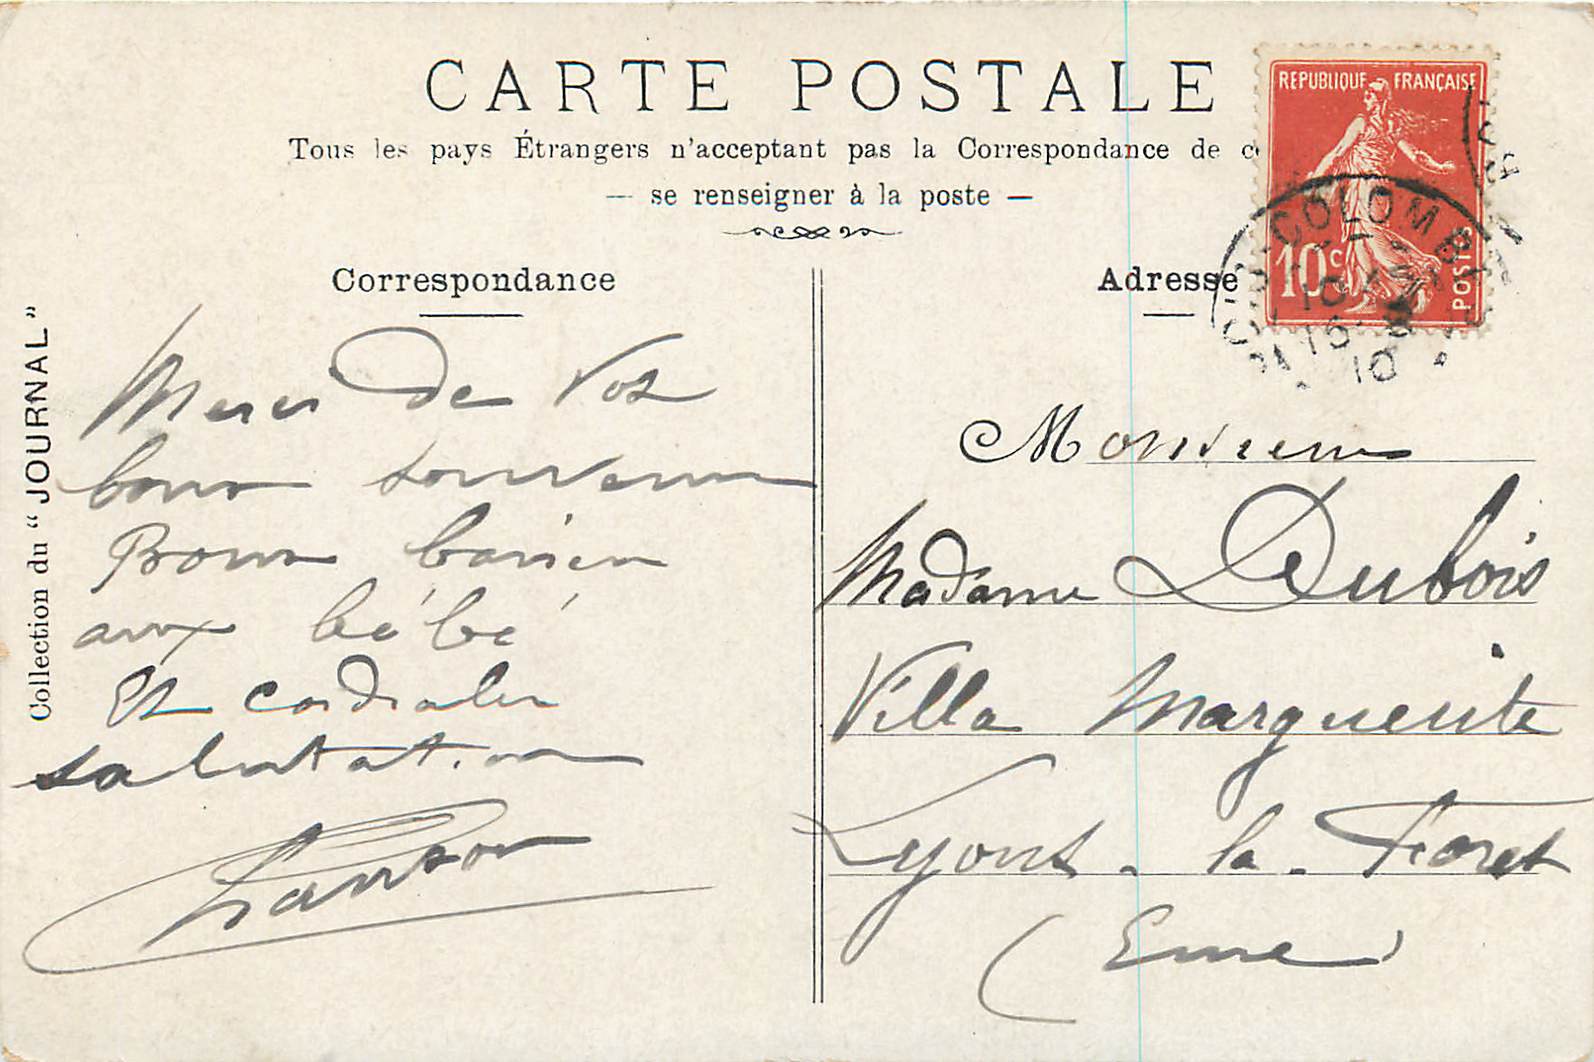 CARTE POSTALE
Tous les pays Étrangers n'acceptant pas la Correspondance de
— se renseigner à la poste —
Correspondance
Collection du "JOURNAL"
Merci de vos
bons souvenirs
Bons baisers
aux bébé
et cordiales
salutations
Adresse
REPUBLIQUE FRANÇAISE
10c
POSTES
COLOMBE
10
Monsieur
Madame Dubois
Villa Marguerite
Lyons-la-Foret
(Eure)